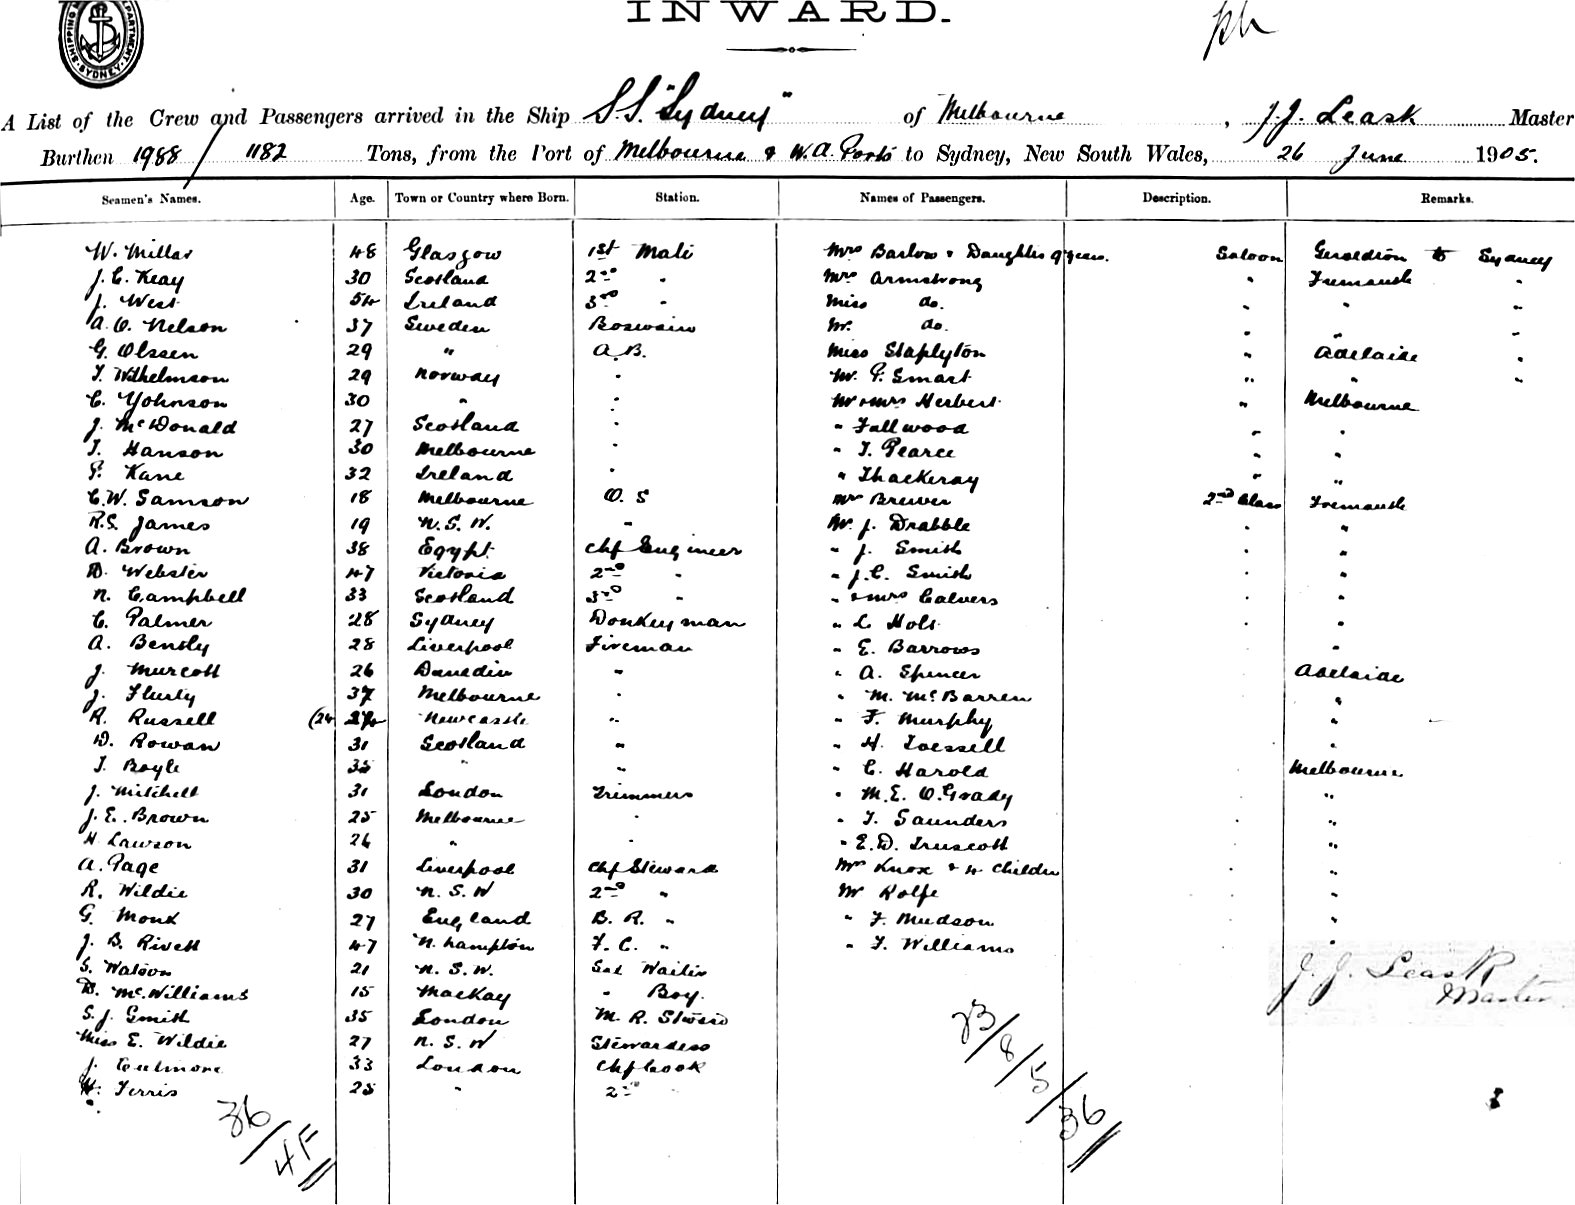 INWARD.
pk
A List of the Crew and Passengers arrived in the Ship S.S. "Sydney" of Melbourne, J.J. Leask Master
Burthen 1988 / 1182 Tons, from the Port of Melbourne & W.A. Ports to Sydney, New South Wales, 26 June 1905.
Seamen's Names. Age. Town or Country where Born. Station. Names of Passengers. Description. Remarks.
W. Millar 48 Glasgow 1st Mate Mrs Barlow & Daughter 9 years. Saloon Geraldton to Sydney
J. C. Keay 30 Scotland 2nd " Mrs Armstrong " Fremantle "
J. West 54 Ireland 3rd " Miss do. " " "
A. O. Nelson 37 Sweden Boswain Mr. do. " " "
G. Olssen 29 " A.B. Miss Staplyton " Adelaide "
T. Wilhelmson 29 Norway " Mr. P. Smart " " "
C. Yohnson 30 " " Mr & Mrs Herbert " Melbourne
J. McDonald 27 Scotland " " Fallwood " "
T. Hanson 30 Melbourne " " T. Pearce " "
P. Kane 32 Ireland " " Thackeray " "
C. W. Samson 18 Melbourne O. S Mr Brewer 2nd Class Fremantle
R. S. James 19 N. S. W. " Mr. J. Drabble " "
A. Brown 38 Egypt Chf Engineer " J. Smith " "
D. Webster 47 Victoria 2nd " " J. C. Smith " "
N. Campbell 33 Scotland 3rd " " & Mrs Calvers " "
C. Palmer 28 Sydney Donkeyman " L. Holt " "
A. Bently 28 Liverpool Fireman " E. Barrows "
J. Murcott 26 Dunedin " " A. Spencer " Adelaide
J. Flurly 37 Melbourne " " M. McBarren " "
R. Russell (24 Newcastle " " F. Murphy " "
D. Rowan 31 Scotland " " H. Loessell " "
T. Boyle 35 " " " C. Harold " Melbourne
J. Mitchell 31 London Trimmers " M. E. O'Grady "
J. E. Brown 25 Melbourne " " T. Saunders " "
H. Lawson 26 " " " E. D. Truscott " "
A. Page 31 Liverpool Chf Steward Mrs Knox & 4 Childen " "
R. Wildie 30 N. S. W 2nd " Mr Rolfe " "
G. Monk 27 England B. R. " " F. Mudson " "
J. B. Rivett 47 N. hampton F. C. " " T. Williams " "
S. Watson 21 N. S. W. Sal Waiter J. J. Leask
D. McWilliams 15 Mackay " Boy. Master
S. J. Smith 35 London M. R. Steward
Miss E. Wildie 27 N. S. W Stewardess
J. Cutmore 33 London Chf Cook
H. Ferris 25 " 2nd "
36/4F
23/8/5/36